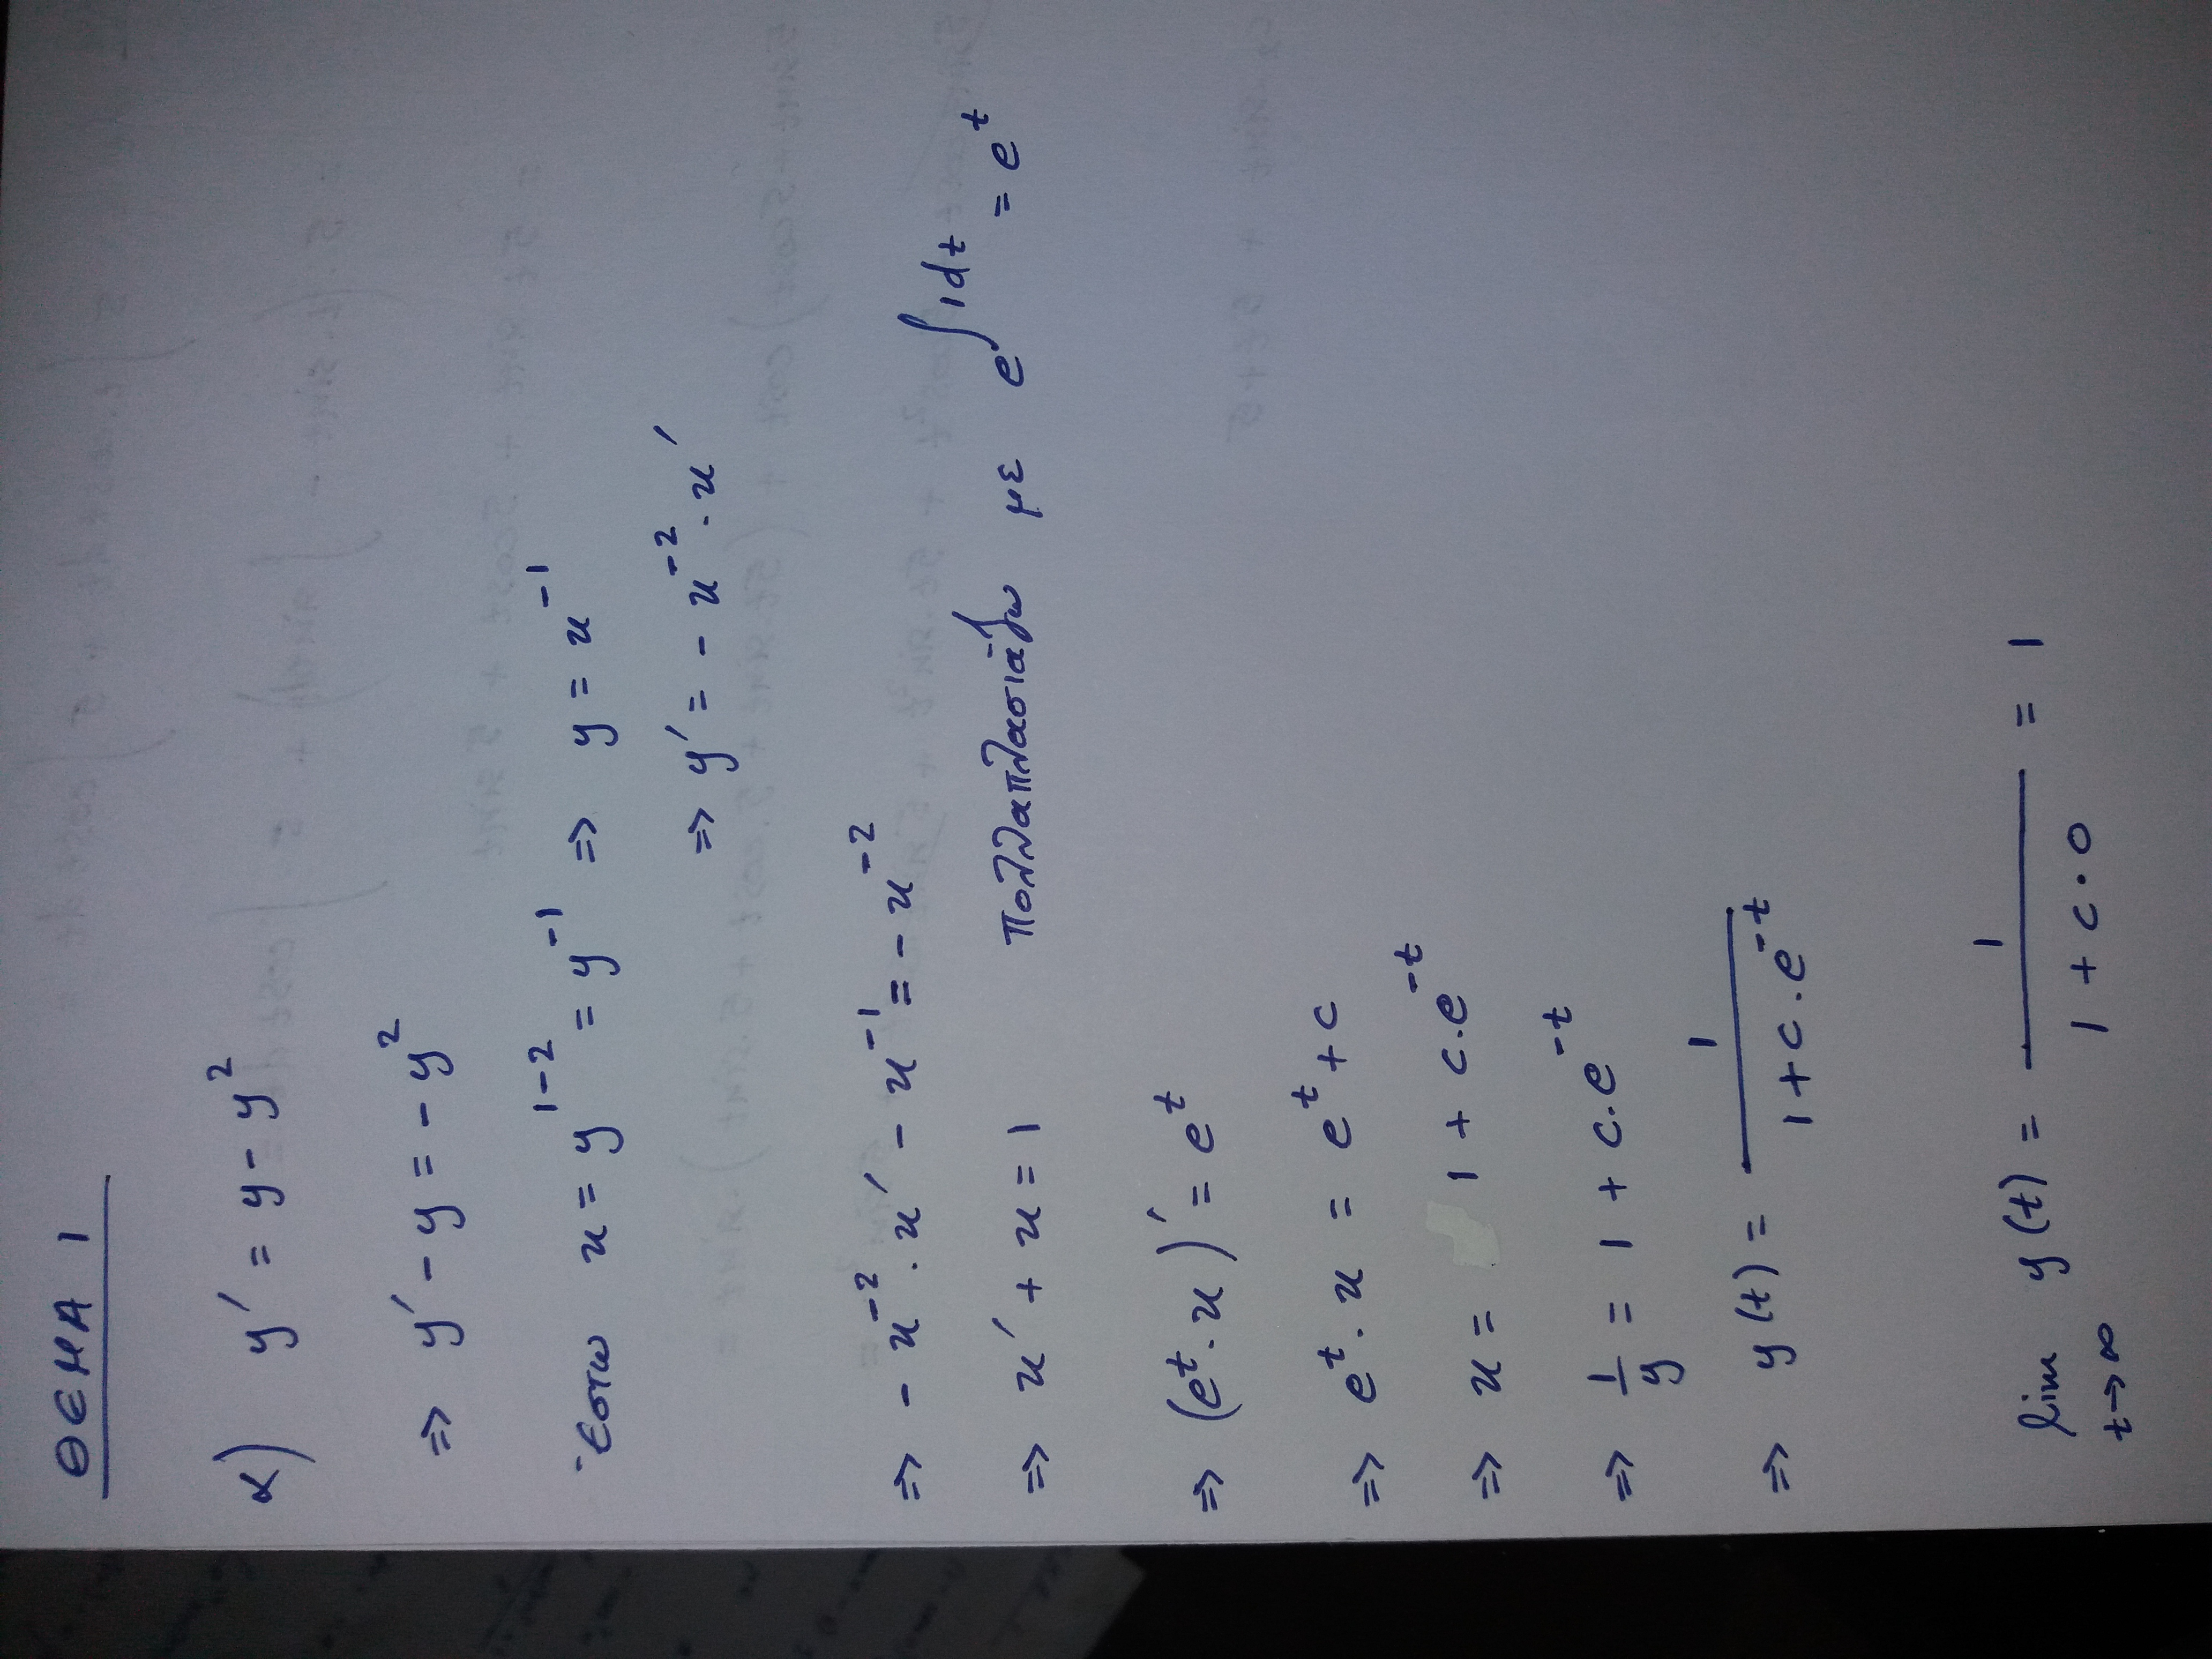 ΘΕΜΑ 1
α) y' = y - y²
⇒ y' - y = - y²
Έστω u = y¹⁻² = y⁻¹ ⇒ y = u⁻¹
⇒ y' = - u⁻² · u'
⇒ - u⁻² · u' - u⁻¹ = - u⁻²
⇒ u' + u = 1 Πολλαπλασιάζω με e^∫1dt = e^t
⇒ (e^t · u)' = e^t
⇒ e^t · u = e^t + c
⇒ u = 1 + c · e^-t
⇒ 1/y = 1 + c · e^-t
⇒ y(t) = 1/(1 + c · e^-t)
lim y(t) = 1/(1 + c · 0) = 1
t→∞